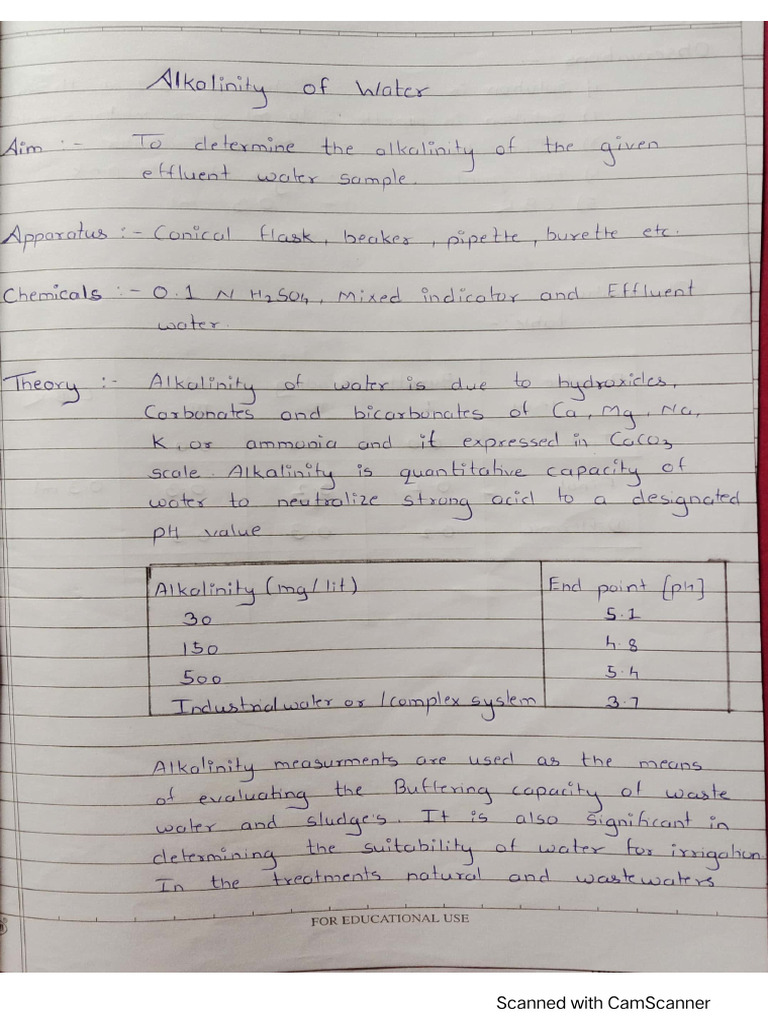 Alkalinity of Water
Aim :- To determine the alkalinity of the given
effluent water sample.
Apparatus :- Conical flask, beaker, pipette, burette etc.
Chemicals :- 0.1 N H2SO4, Mixed indicator and Effluent
water.
Theory :- Alkalinity of water is due to hydroxides,
Carbonates and bicarbonates of Ca, Mg, Na,
K, or ammonia and it expressed in CaCO3
scale. Alkalinity is quantitative capacity of
water to neutralize strong acid to a designated
pH value
Alkalinity (mg/lit) End point [pH]
30 5.1
150 4.8
500 5.4
Industrial water or /complex system 3.7
Alkalinity measurments are used as the means
of evaluating the Buffering capacity of waste
water and sludge's. It is also significant in
determining the suitability of water for irrigation
In the treatments natural and wastewaters
FOR EDUCATIONAL USE
Scanned with CamScanner